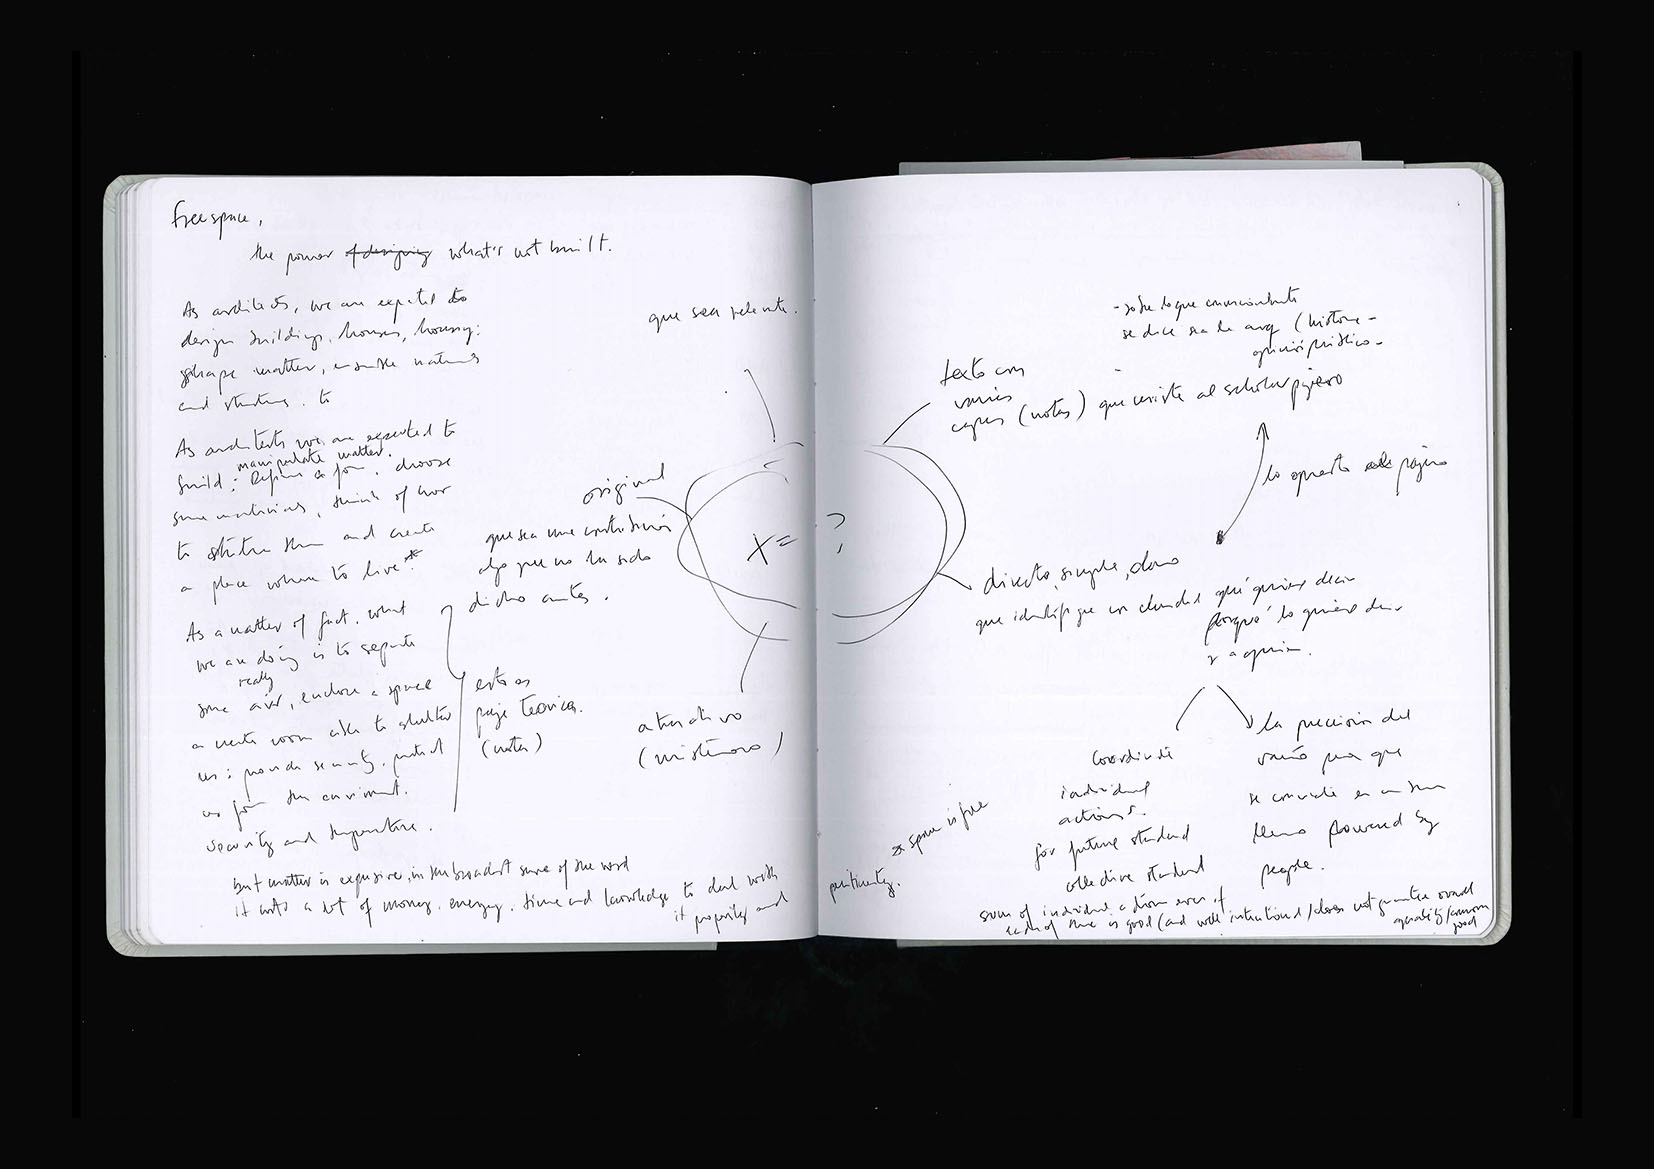 Freespace,
the power of designing what's not built.
As architects, we are expected to
design buildings, houses, housing:
shape matter, ensemble
and structure. to
As architects we are expected to
manipulate matter.
build: Define a form. choose
some materials, think of how
to structure them and create
a place where to live*.
As a matter of fact, what
we are doing is to separate
really
some air, enclose a space
a room able to shelter
us: provide security, protect
us from the enviroment.
security and temperature.
but matter is expensive, in the broadest sense of the word
it costs a lot of money, energy, time and knowledge to deal with
it properly and
que sea
original
que sea una contribución
algo que no ha sido
dicho antes.
esto es
teórica.
(notas)
atractivo
(misterioso)
X = ?
- sobre lo que
se dice sea la arq (historia -
texto con
varias
capas (notas) que resiste al scholar pajero
lo opuesto al pajero
directo, simple, claro
que identifique con claridad qué quiere decir
porqué lo quiere decir
y a quien.
coordinate
individual
actions.
for future standard
collective standard
la precisión del
vacío para que
se convierta en un
lleno powered by
people.
* space is free
pertinently.
sum of individual actions even if
each of them is good (and well intentioned) does not guarantee overall
quality/common
good